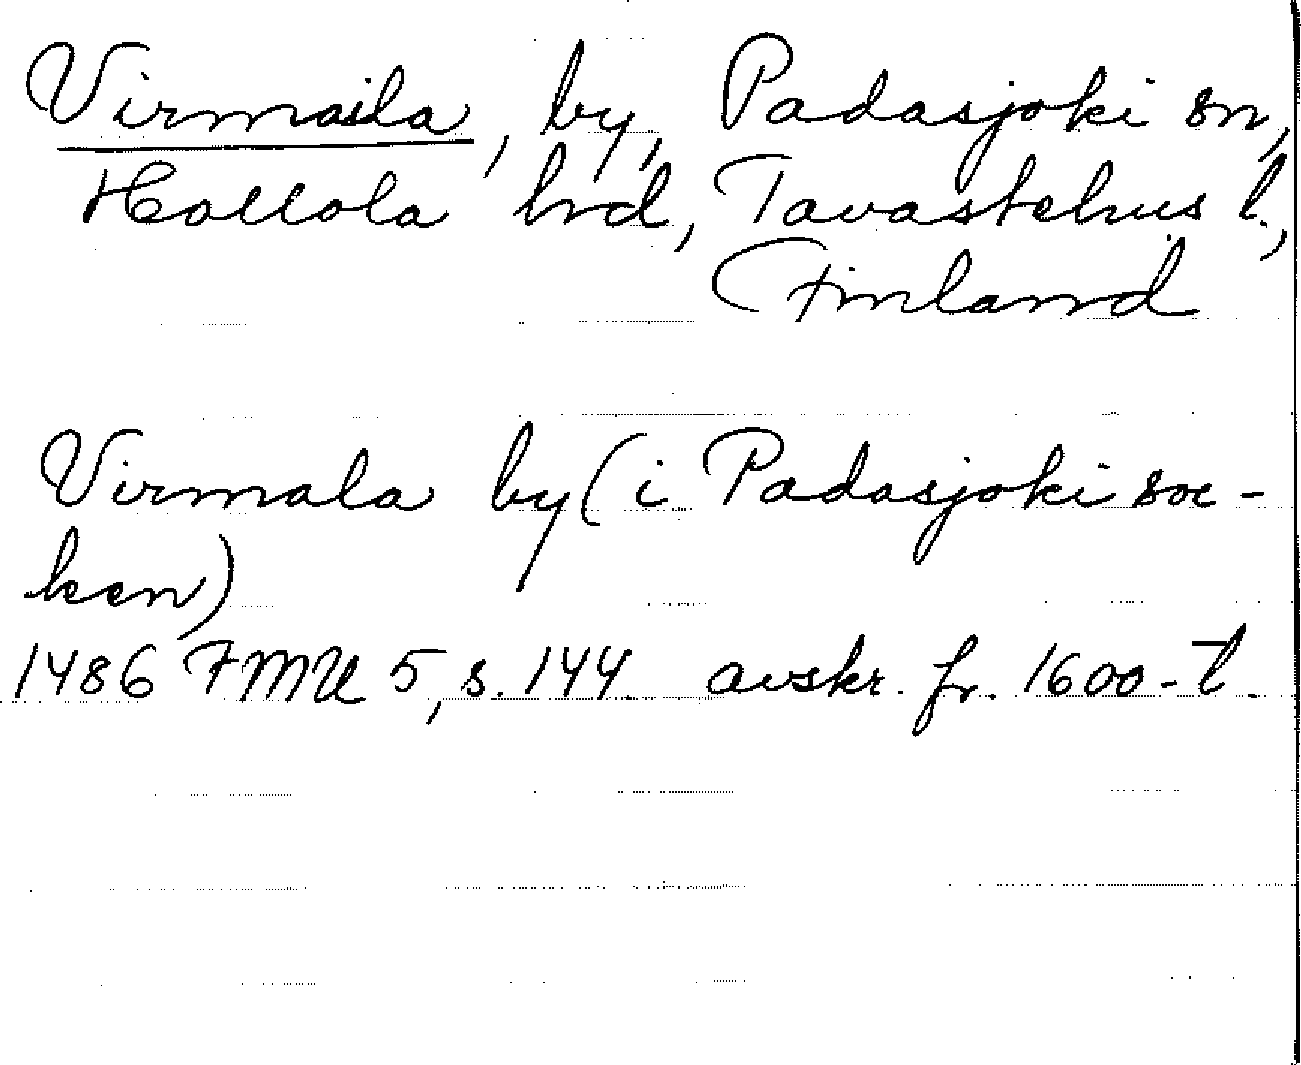 Virmaila, by, Padasjoki sn,
Hollola hrd, Tavastehus l.,
Finland
Virmala by (i Padasjoki soc-
ken)
1486 FMU 5, s. 144. avskr. fr. 1600-t.